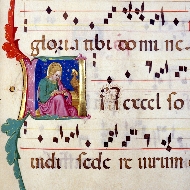 gloria tibi domine
In excelso
uidi sede re uirum